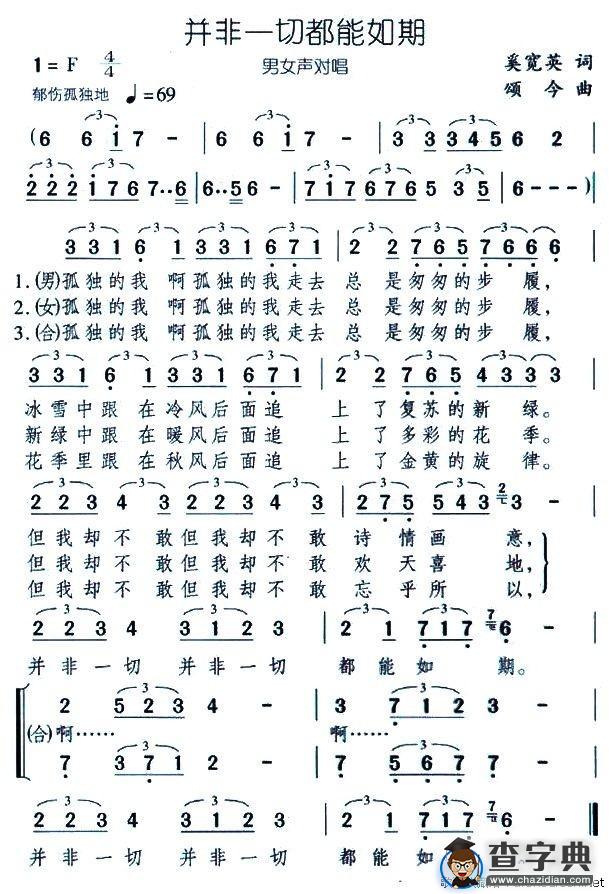 并非一切都能如期
1=F 4/4
男女声对唱
奚宽英 词
郁伤孤独地 ♩=69
颂今 曲
(6 6 i 7 - 6 6 i 7 - 3 3 3 3 4 5 6 2
2 2 2 1 7 6 7··6 6··5 6 - 7 1 7 6 7 6 5 3 5 6 - - - )
3 3 1 6 1 3 3 1 6 7 1 2 2 7 6 5 7 6 6 6
1.(男)孤独的我 啊孤独的我走去 总 是匆匆的步 履,
2.(女)孤独的我 啊孤独的我走去 总 是匆匆的步 履,
3.(合)孤独的我 啊孤独的我走去 总 是匆匆的步 履,
3 3 1 6 1 3 3 1 6 7 1 2 2 7 6 5 4 3 3 3
冰雪中跟 在冷风后面追 上 了复苏的新 绿。
新绿中跟 在暖风后面追 上 了多彩的花 季。
花季里跟 在秋风后面追 上 了金黄的旋 律。
2 2 3 4 3 2 2 3 4 3 2 7 5 5 4 3 2 3 -
但我却不敢但我却不敢 诗情画 意,
但我却不敢但我却不敢 欢天喜 地,
但我却不敢但我却不敢 忘乎所 以,
2 2 3 4 - 3 1 2 3 - 2 1 7 1 7 7 6 -
并非一切 并非一切 都能如 期。
2 5 2 3 4 - 3 7 1 2 3 -
(合)啊…… 啊……
7 3 7 1 2 - 7 5 6 7 7 -
2 2 3 4 - 3 1 2 3 -
并非一切 并非一切 都能如
查字典
www.chazidian.com